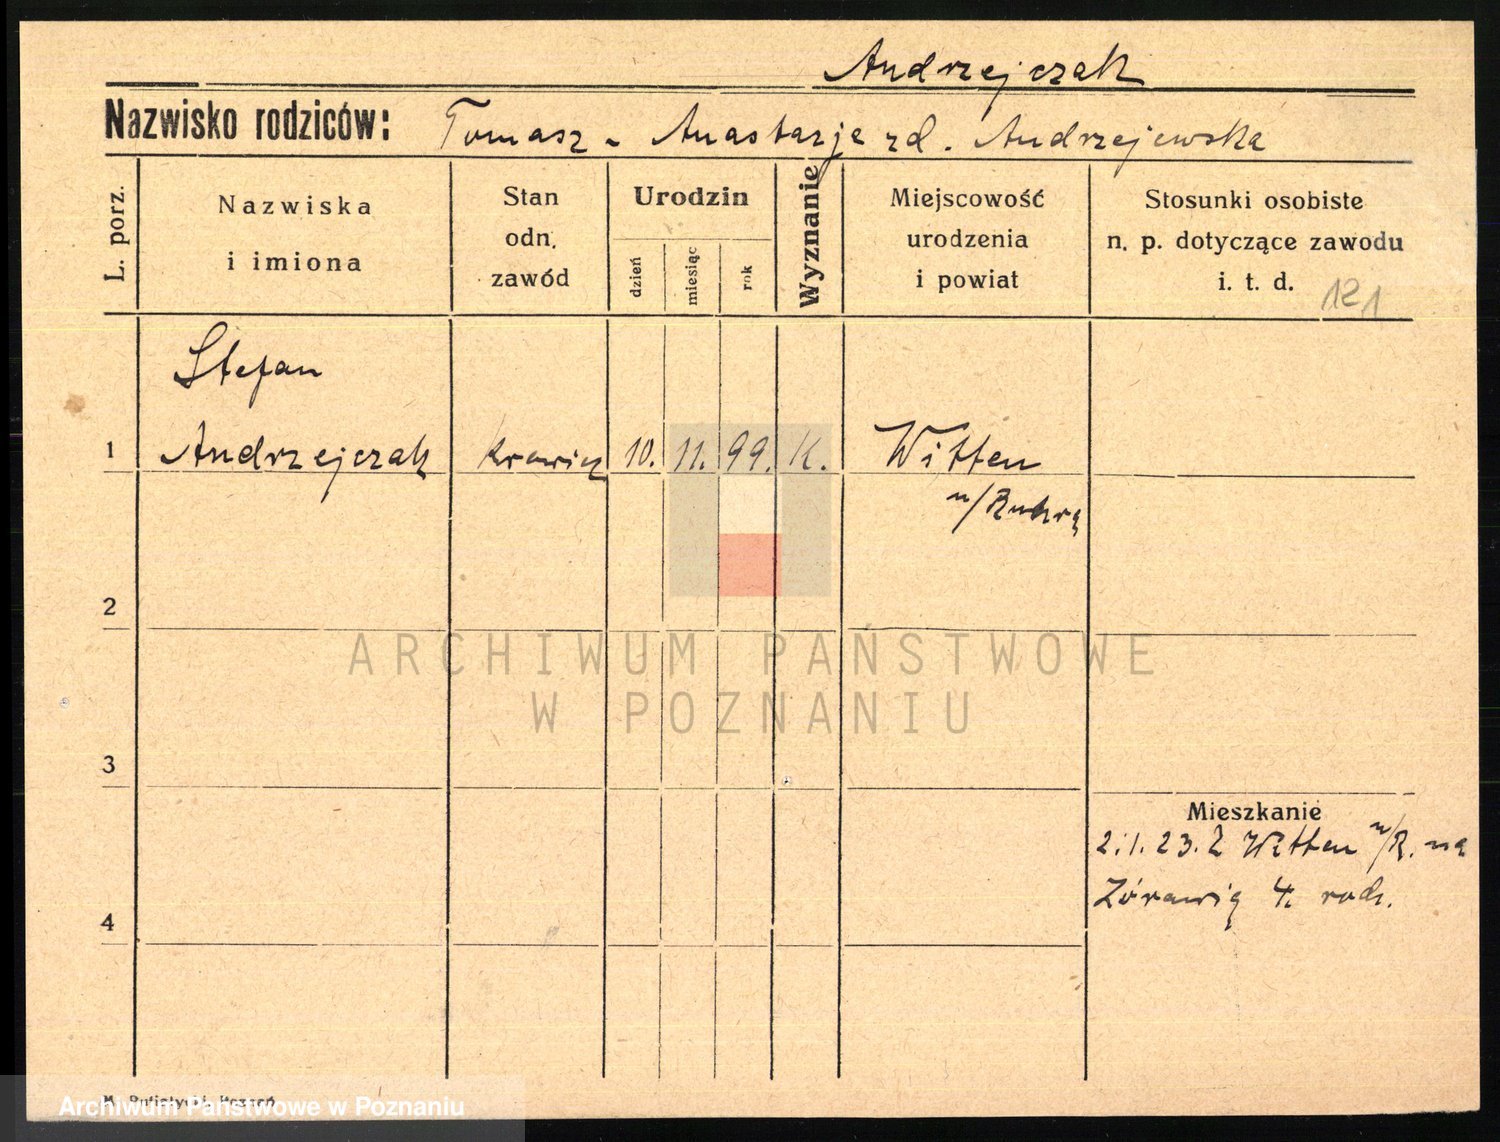 Andrzejczak
Nazwisko rodziców: Tomasz - Anastazje zd. Andrzejewska
L. porz.
Nazwiska
i imiona
Stan
odn.
zawód
Urodzin
dzień
miesiąc
rok
Wyznanie
Miejscowość
urodzenia
i powiat
Stosunki osobiste
n. p. dotyczące zawodu
i. t. d.
121
Stefan
1 Andrzejczak krawiec 10. 11. 99. K. Witten
n/Ruhrą
2
ARCHIWUM PAŃSTWOWE
W POZNANIU
3
Mieszkanie
2.1.23. Z Witten n/R. na
4 Żórawią 4. rodz.
Archiwum Państwowe w Poznaniu